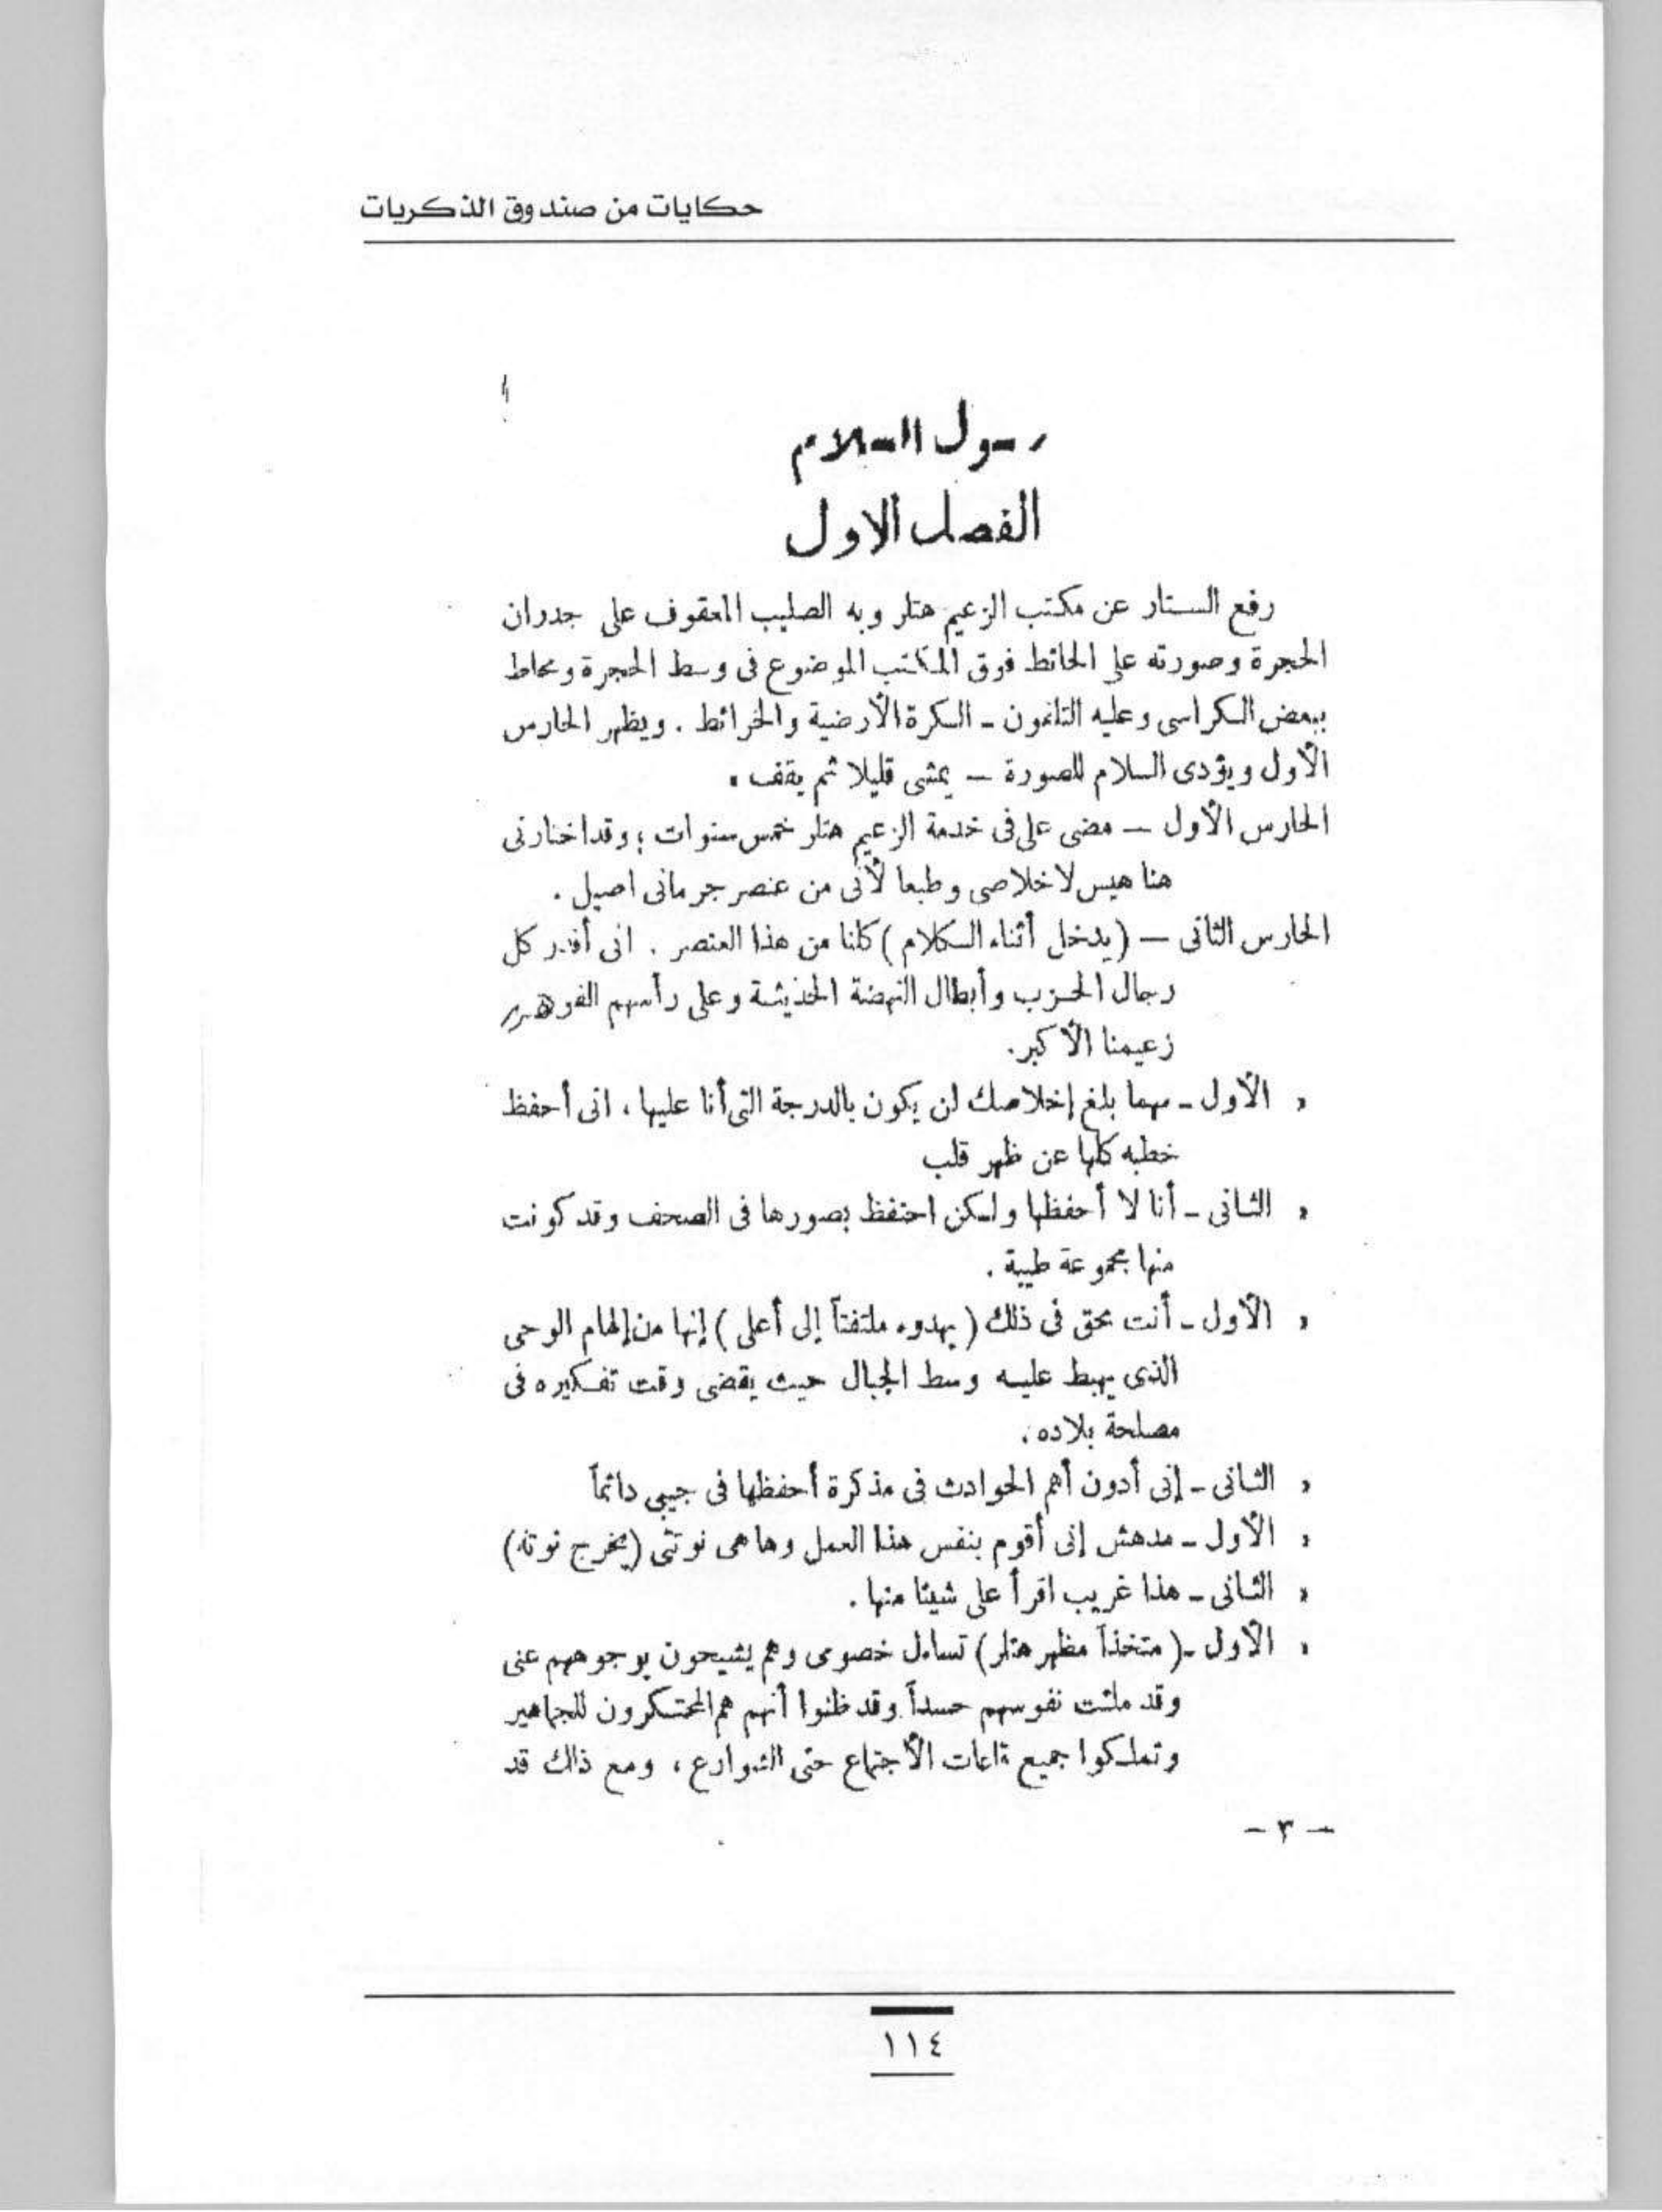 حكايات من صندوق الذكريات
رسول السلام
الفصل الاول
رفع الستار عن مكتب الزعيم هتلر وبه الصليب المعقوف على جدران
الحجرة وصورته على الحائط فوق المكتب الموضوع فى وسط الحجرة ومحاط
ببعض الكراسى وعليه التلفون ـ الكرة الأرضية والخرائط . ويظهر الحارس
الأول ويؤدى السلام للصورة — يمشى قليلا ثم يقف .
الحارس الأول — مضى على فى خدمة الزعيم هتلر خمس سنوات ؛ وقد اختارنى
هنا هيس لاخلاصى وطبعا لأنى من عنصر جرمانى اصيل .
الحارس الثانى — ( يدخل أثناء الكلام ) كلنا من هذا العنصر . انى أقدر كل
رجال الحزب وأبطال النهضة الحديثة وعلى رأسهم الفوهرر
زعيمنا الأكبر .
« الأول ـ مهما بلغ إخلاصك لن يكون بالدرجة التى أنا عليها ، انى أحفظ
خطبه كلها عن ظهر قلب
« الثانى ـ أنا لا أحفظها ولكن احتفظ بصورها فى الصحف وقد كونت
منها مجموعة طيبة .
« الأول ـ أنت محق فى ذلك ( بهدوء ملتفتاً إلى أعلى ) إنها من إلهام الوحى
الذى يهبط عليه وسط الجبال حيث يقضى وقت تفكيره فى
مصلحة بلاده .
« الثانى ـ إنى أدون أهم الحوادث فى مذكرة أحفظها فى جيبى دائماً
« الأول ـ مدهش إنى أقوم بنفس هذا العمل وها هى نوتتى ( يخرج نوته )
« الثانى ـ هذا غريب اقرأ على شيئا منها .
« الأول ـ ( متخذاً مظهر هتلر ) تساءل خصومى وهم يشيحون بوجوههم عنى
وقد ملئت نفوسهم حسداً وقد ظنوا أنهم هم المحتكرون للجماهير
وتملكوا جميع قاعات الأجتماع حتى الشوارع ، ومع ذلك قد
— ٣ —
١١٤